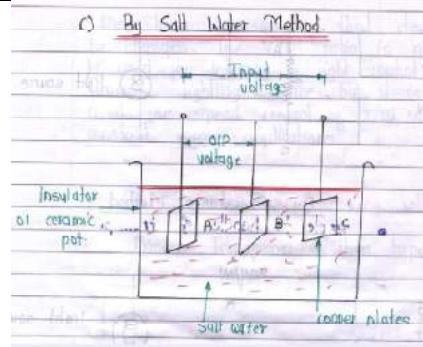 c) By Salt Water Method
Input
voltage
O/P
voltage
Insulator
or ceramic
pot.
A B C
Salt water
copper plates